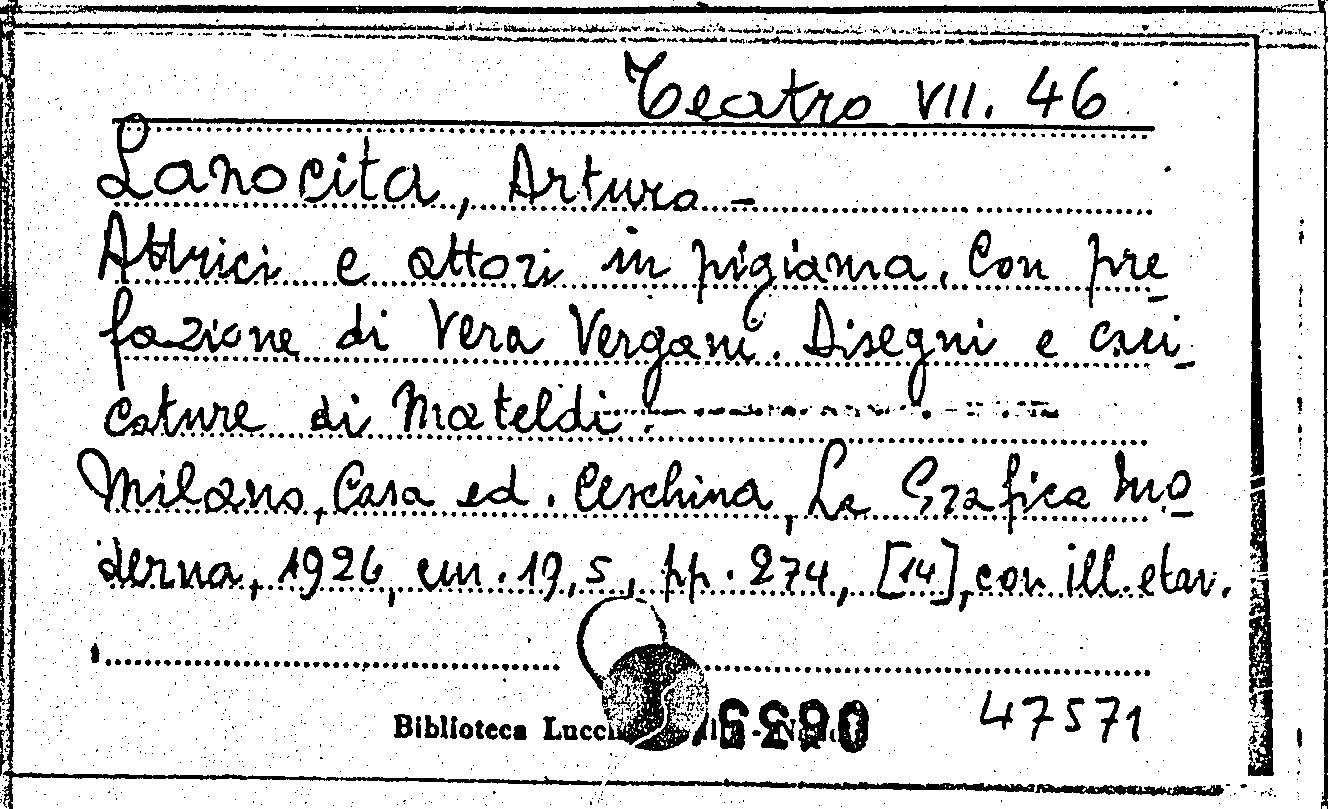 Teatro VII. 46
Lanocita, Arturo -
Attrici e attori in pigiama. Con pre_
fazione di Vera Vergani. Disegni e cari_
cature di Mateldi.
Milano, Casa ed. Ceschina, La Grafica Mo_
derna, 1926, cm. 19,5, pp. 274, [14], con ill. e tav.
Biblioteca
47571